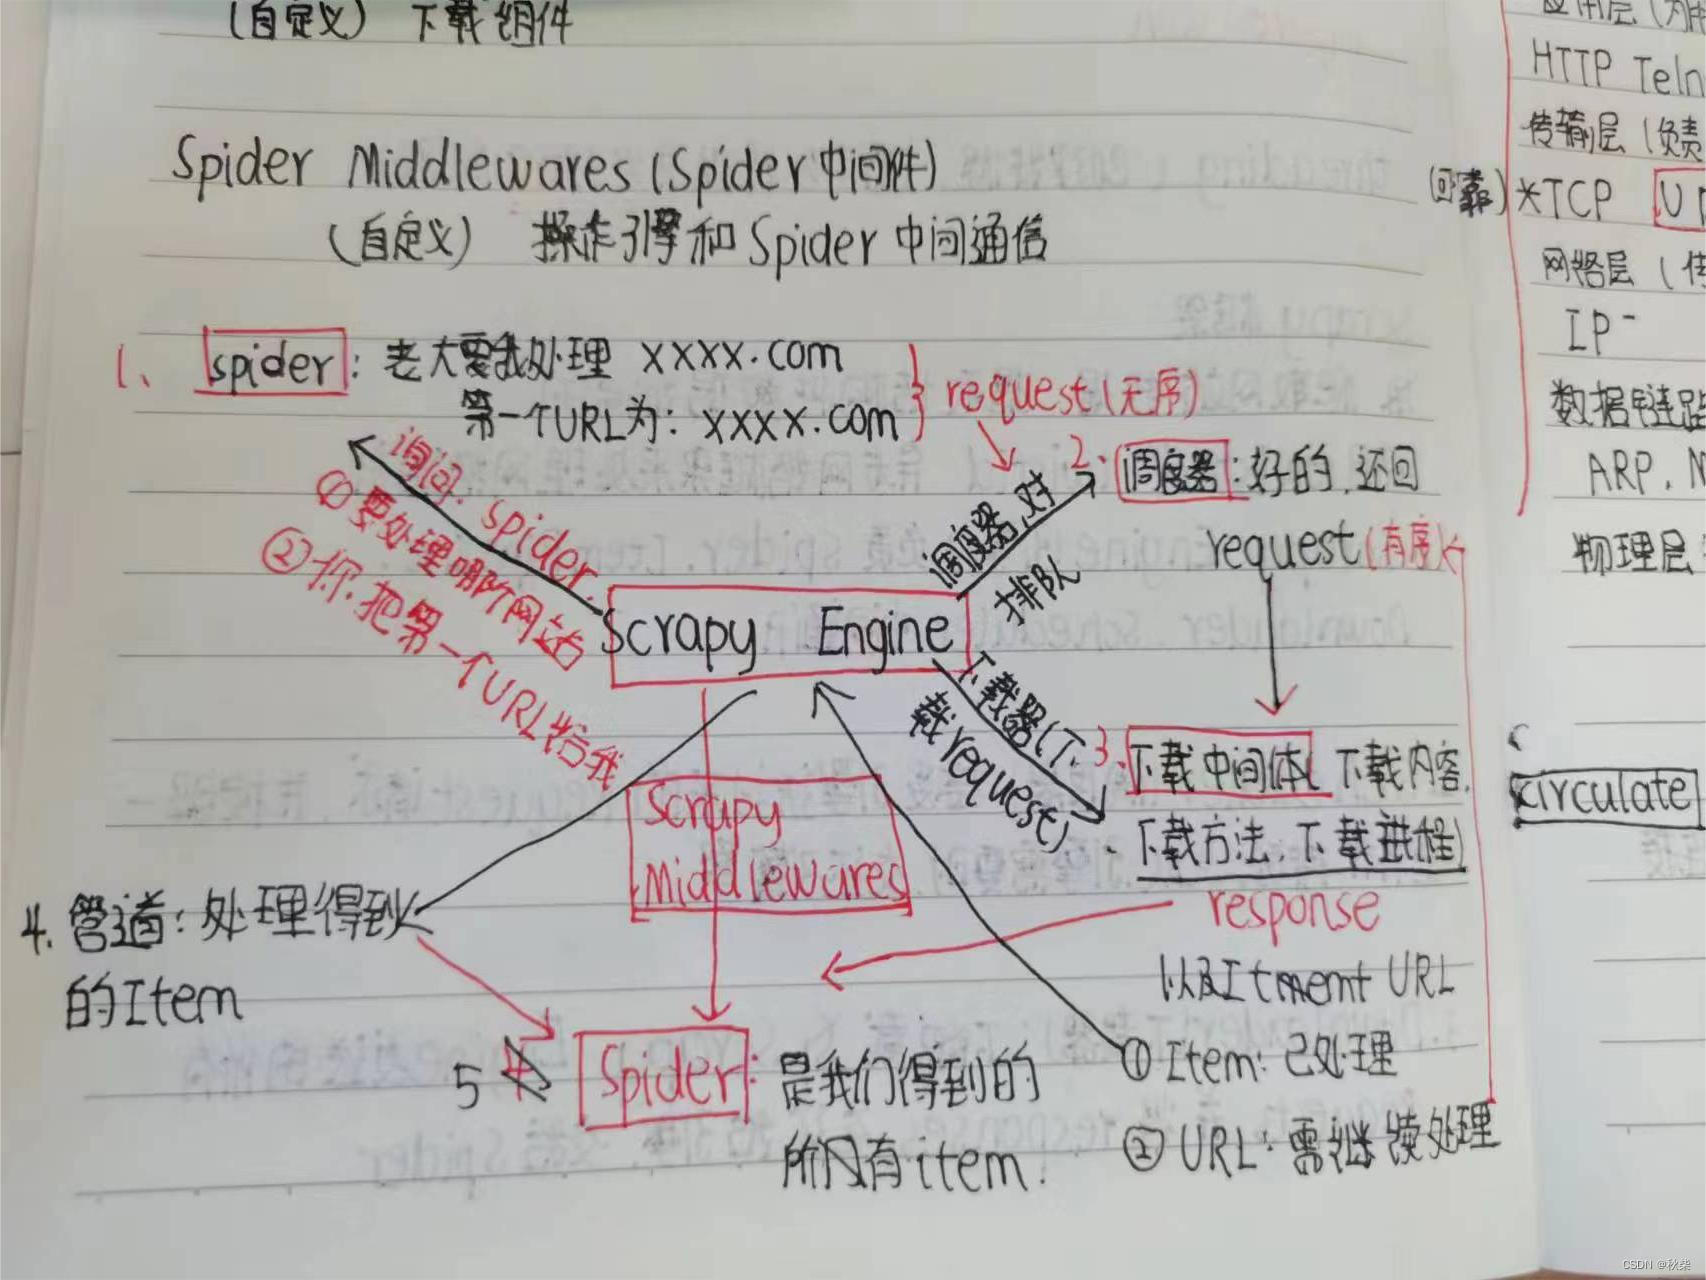 (自定义) 下载组件
Spider Middlewares (Spider中间件)
(自定义) 操作引擎和Spider中间通信
1、 spider: 老大要我处理 xxxx.com
第一个URL为: xxxx.com
request(无序)
询问: spider.
①要处理哪个网站
②你把第一个URL给我
调度器,对
排队
2. 调度器: 好的,还回
request(有序)
Scrapy Engine
下载器(下
载request)
3. 下载中间体 下载内容,
下载方法,下载进程
Scrapy
Middlewares
response
以及Itmemt URL
4. 管道: 处理得到
的Item
5 4 Spider: 是我们得到的
所有item.
① Item: 已处理
② URL: 需继续处理
应用层
HTTP Teln
传输层 (负责
(可靠) *TCP U
网络层 (传
IP
数据链路
ARP.
物理层
circulate
CSDN @秋柴